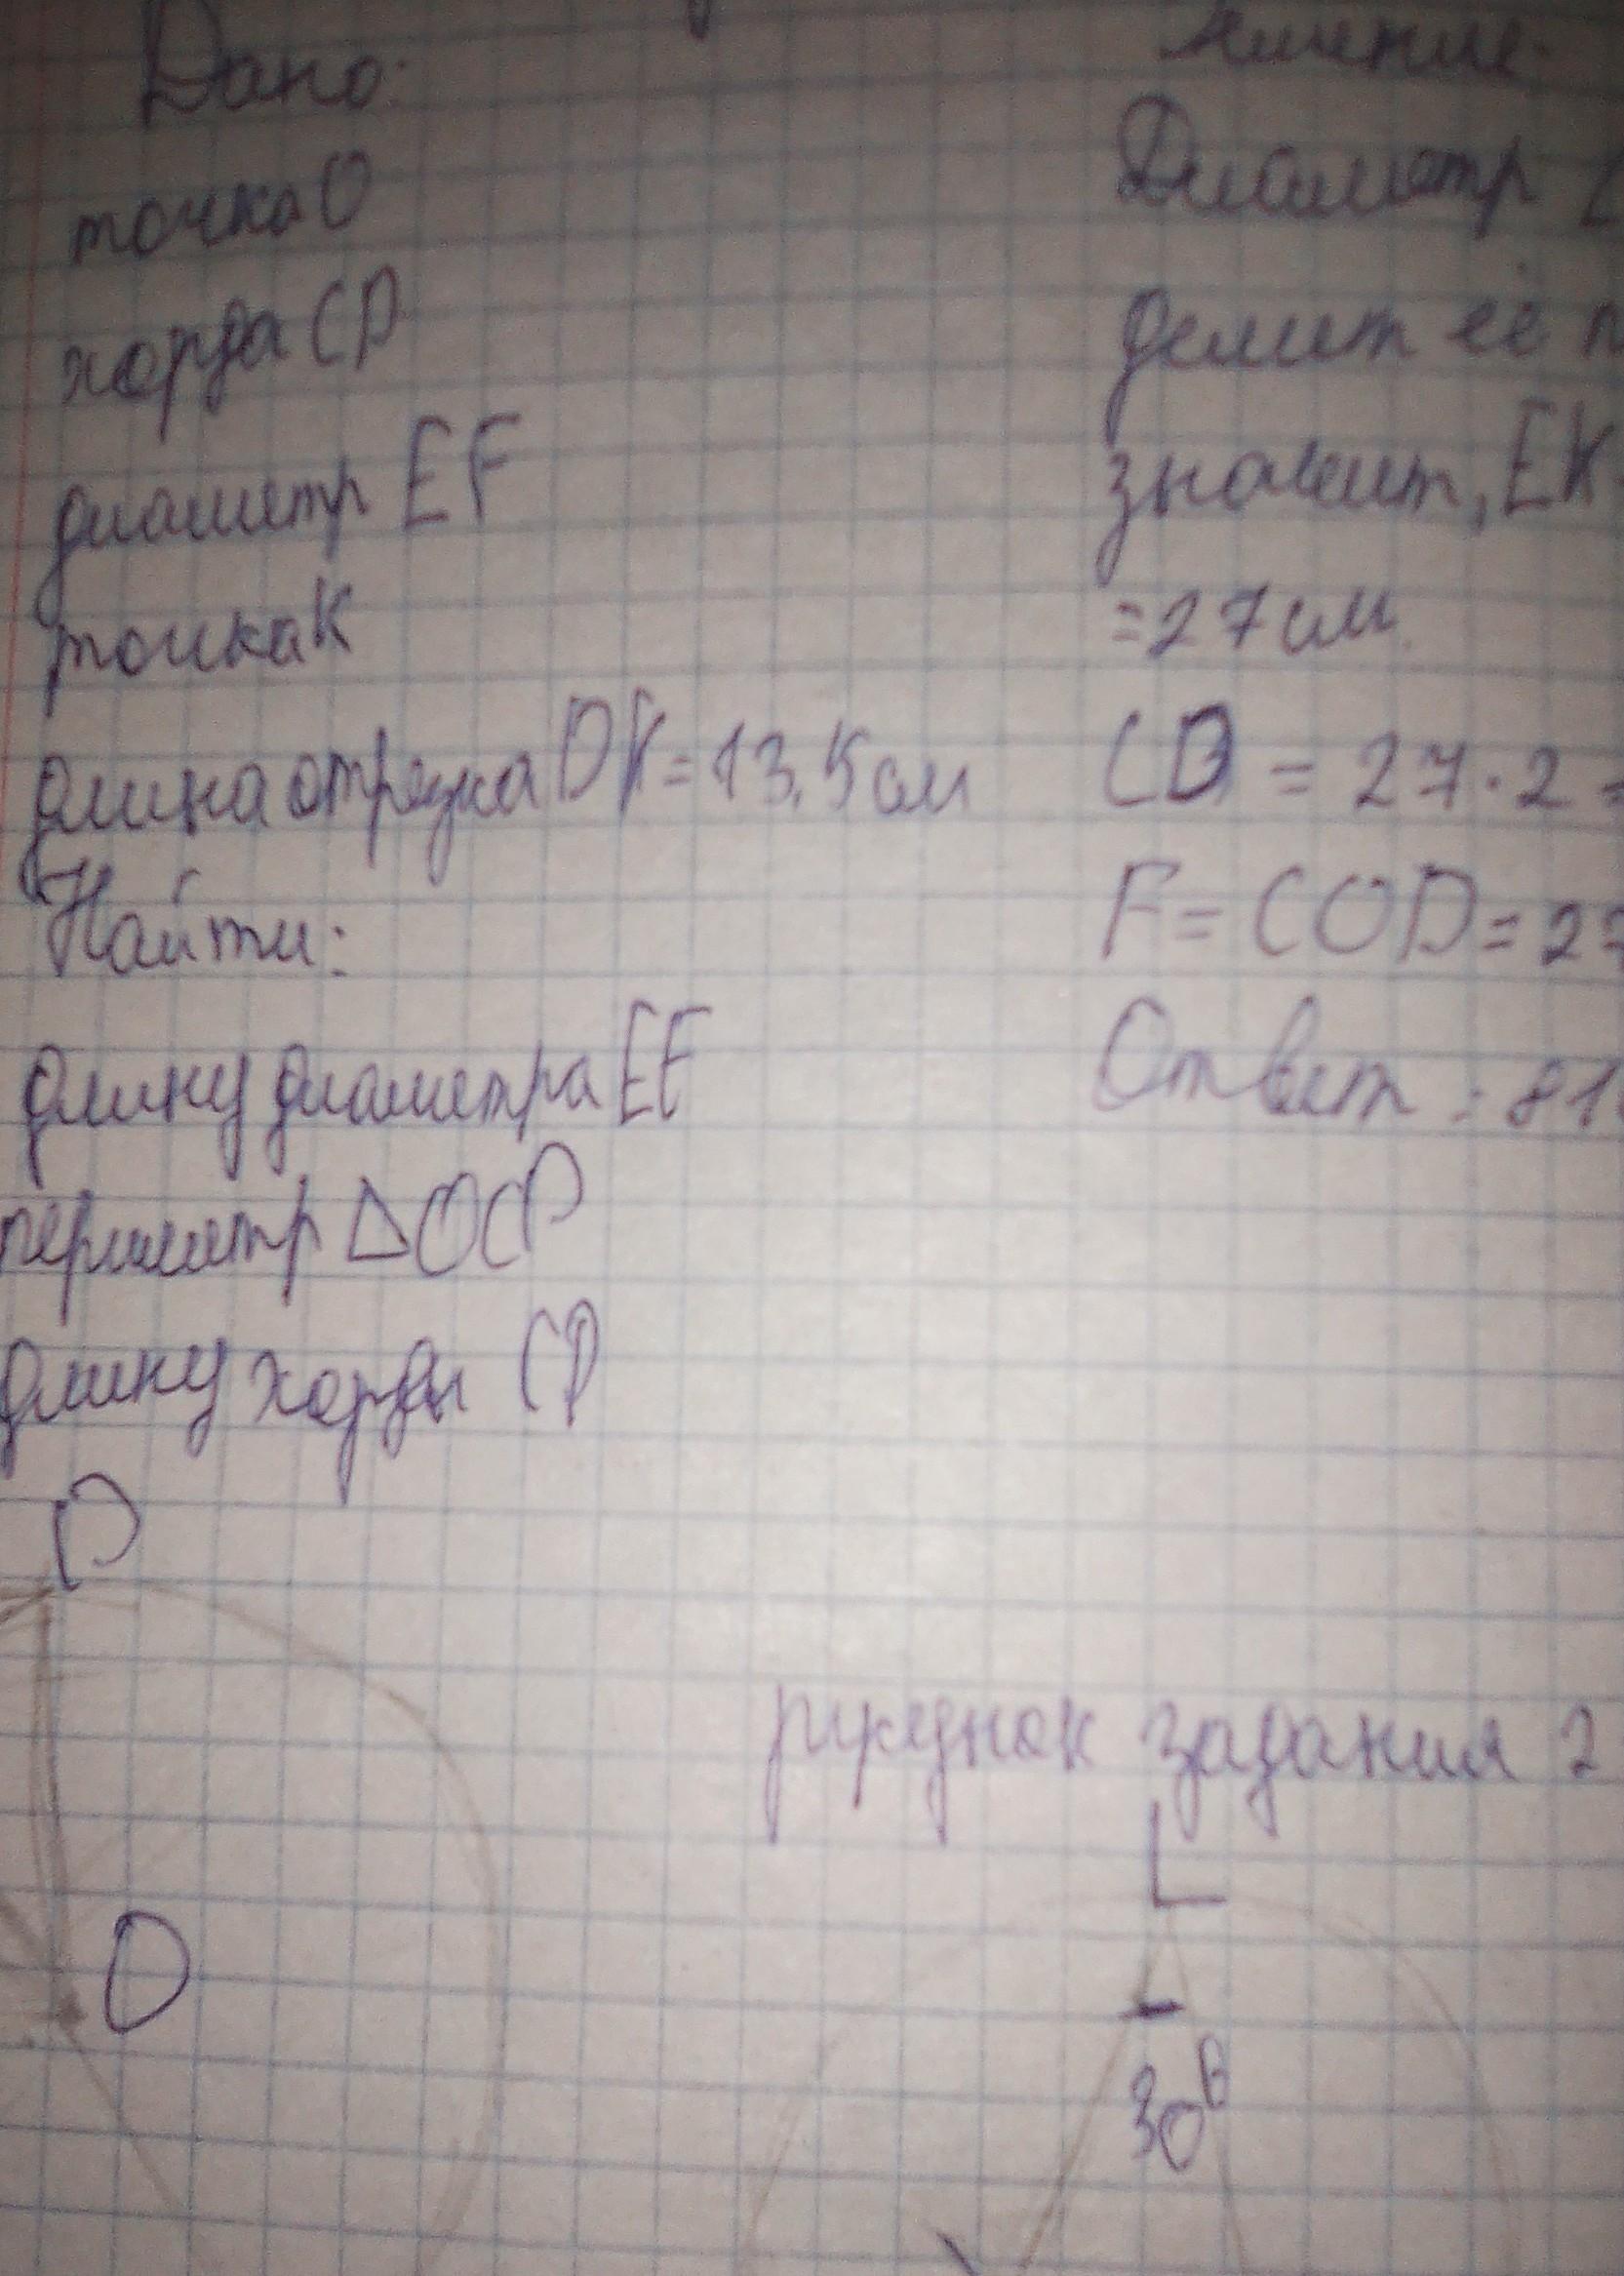 Дано:
точка О
хорда CD
диаметр EF
точка К
длина отрезка DK = 13,5 см
Найти:
длину диаметра EF
периметр △OCD
длину хорды CD
Диаметр
делит её
значит, EK
= 27 см
CD = 27 · 2 =
F = COD = 27
Ответ : 81
D
O
задания 2
L
30